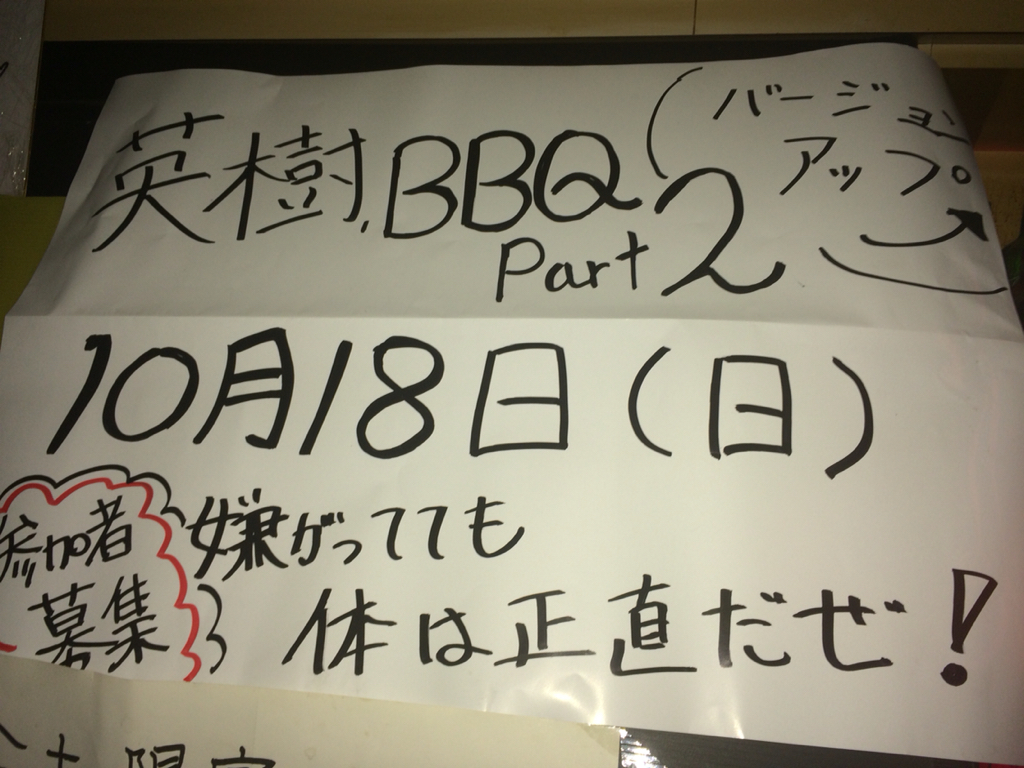 英樹.BBQ
Part 2
(バージョン
アップ)
10月18日(日)
参加者
募集
嫌がってても
体は正直だぜ!
限定